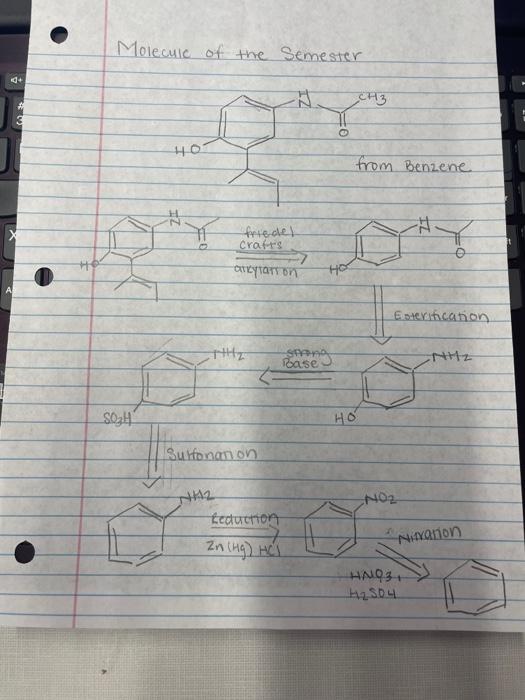 Molecule of the Semester
H
N
CH3
O
HO
from Benzene
H
N
O
HO
friedel
crafts
alkylation
H
N
O
HO
Esterification
NH2
SO3H
strong
Base
NH2
HO
Sulfonation
NH2
Reduction
Zn(Hg) HCl
NO2
Nitration
HNO3,
H2SO4